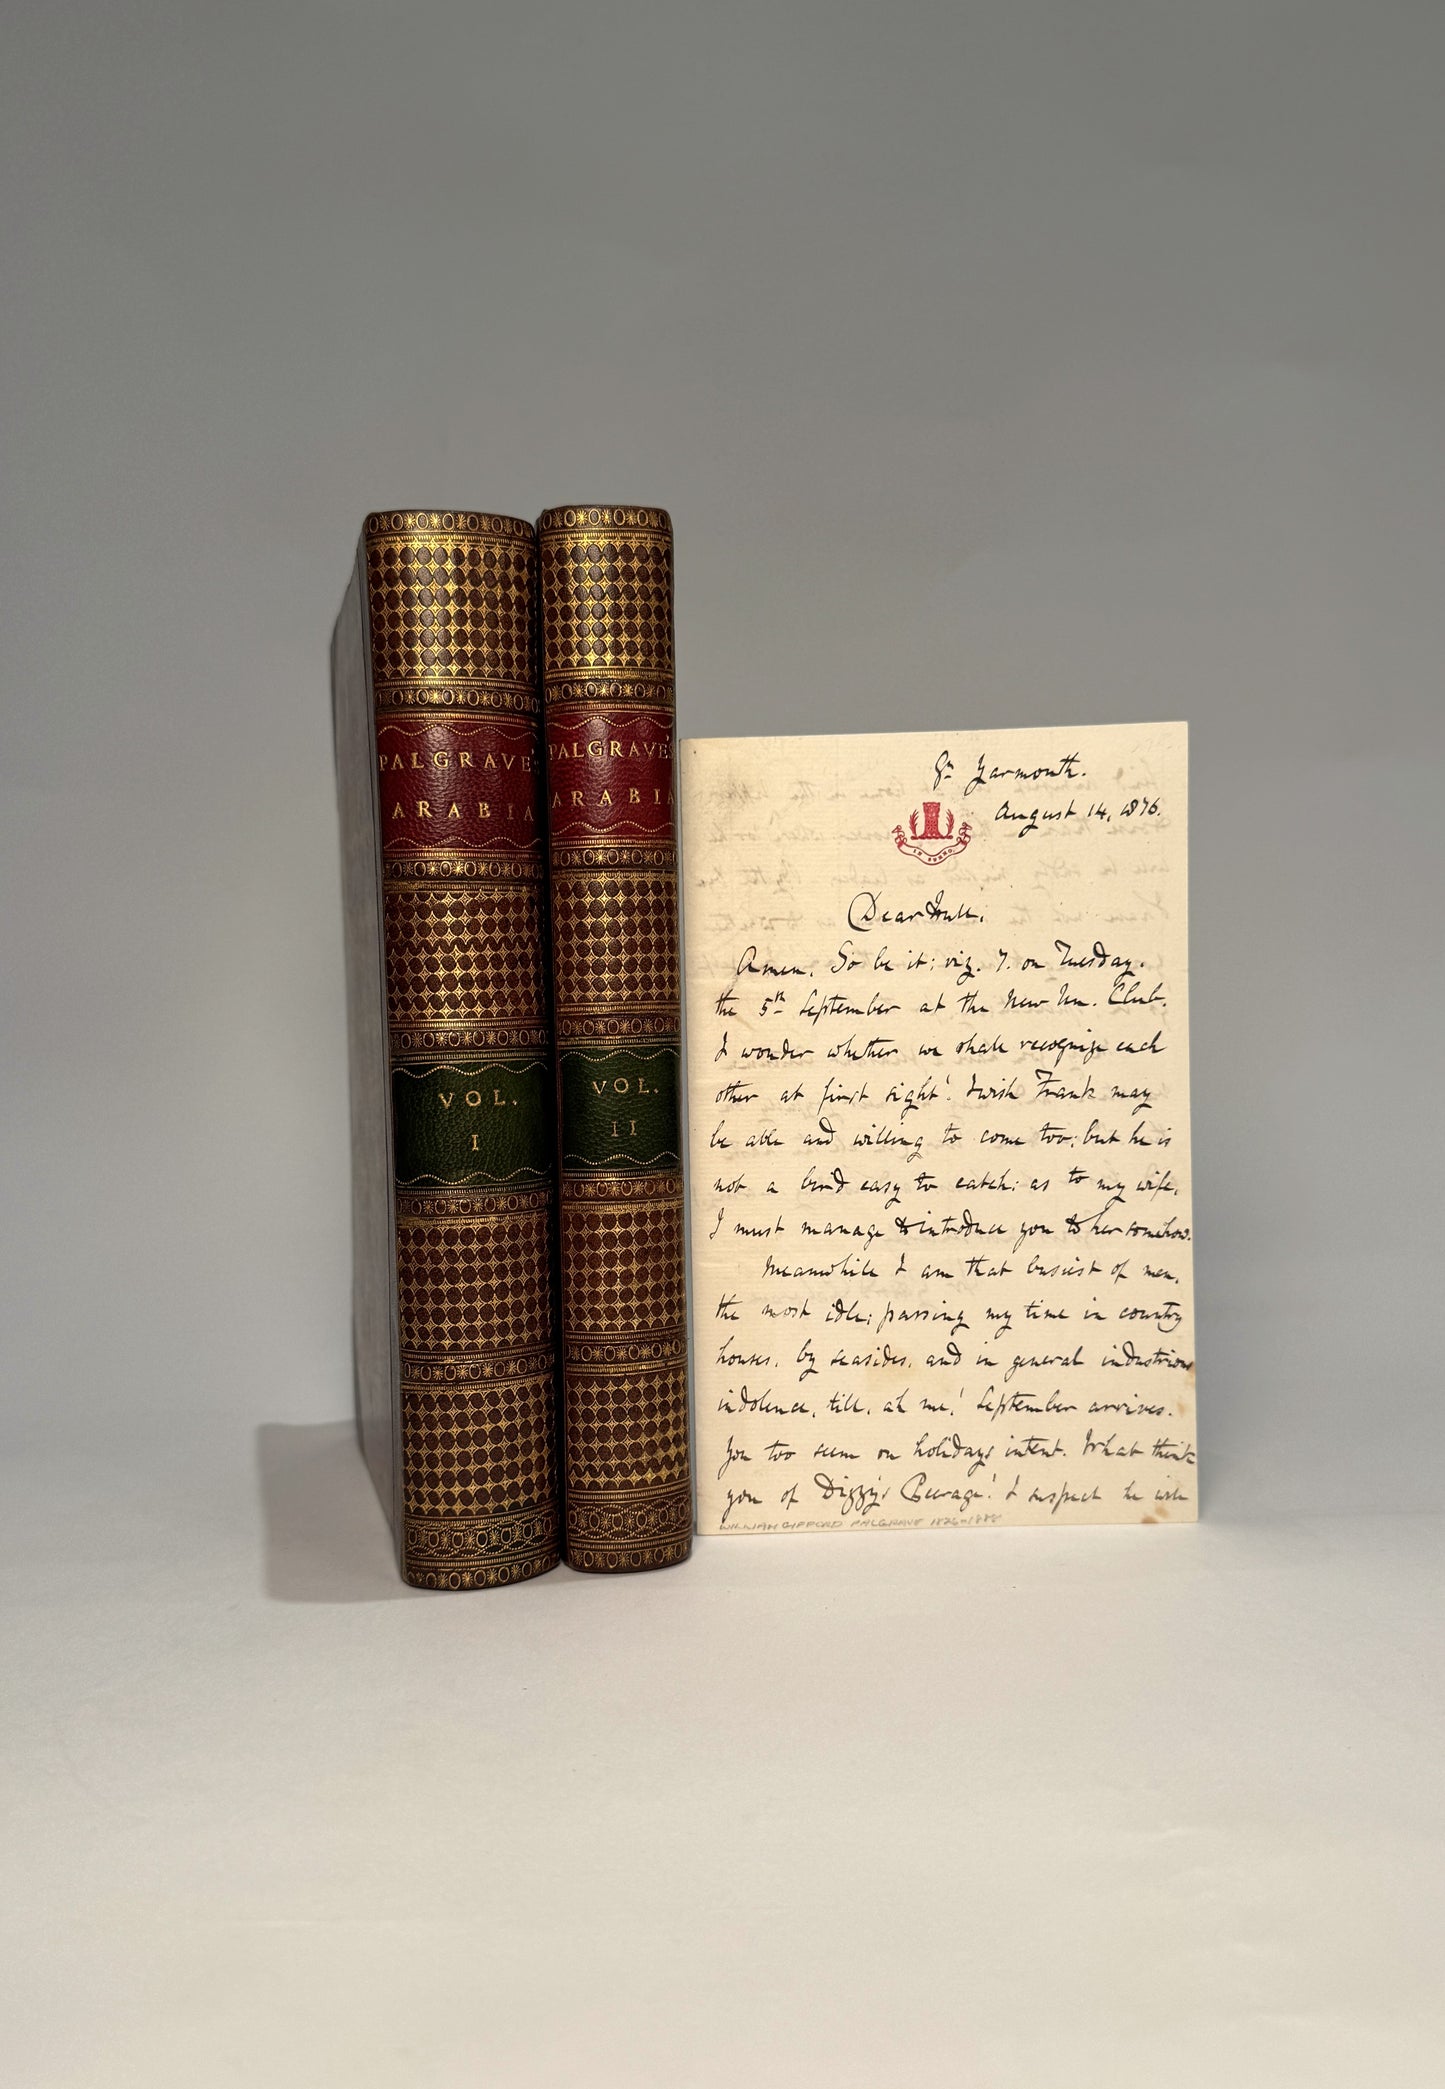 PALGRAVE'S
ARABIA
VOL.
I
PALGRAVE'S
ARABIA
VOL.
II
Gt. Yarmouth.
August 14, 1876.
IN SPERO
Dear
Amen. So be it; viz. 7. on Tuesday.
the 5th September at the New Un. Club.
I wonder whether we shall recognize each
other at first sight! I wish Frank may
be able and willing to come too; but he is
not a bird easy to catch: as to my wife,
I must manage to introduce you to her somehow.
Meanwhile I am that busiest of men,
the most idle; passing my time in country
houses, by seasides, and in general industrious
indolence, till, ah me! September arrives.
You too seem on holidays intent. What think
you of Dizzy's Peerage! I suspect he will
WILLIAM GIFFORD PALGRAVE 1826-1888